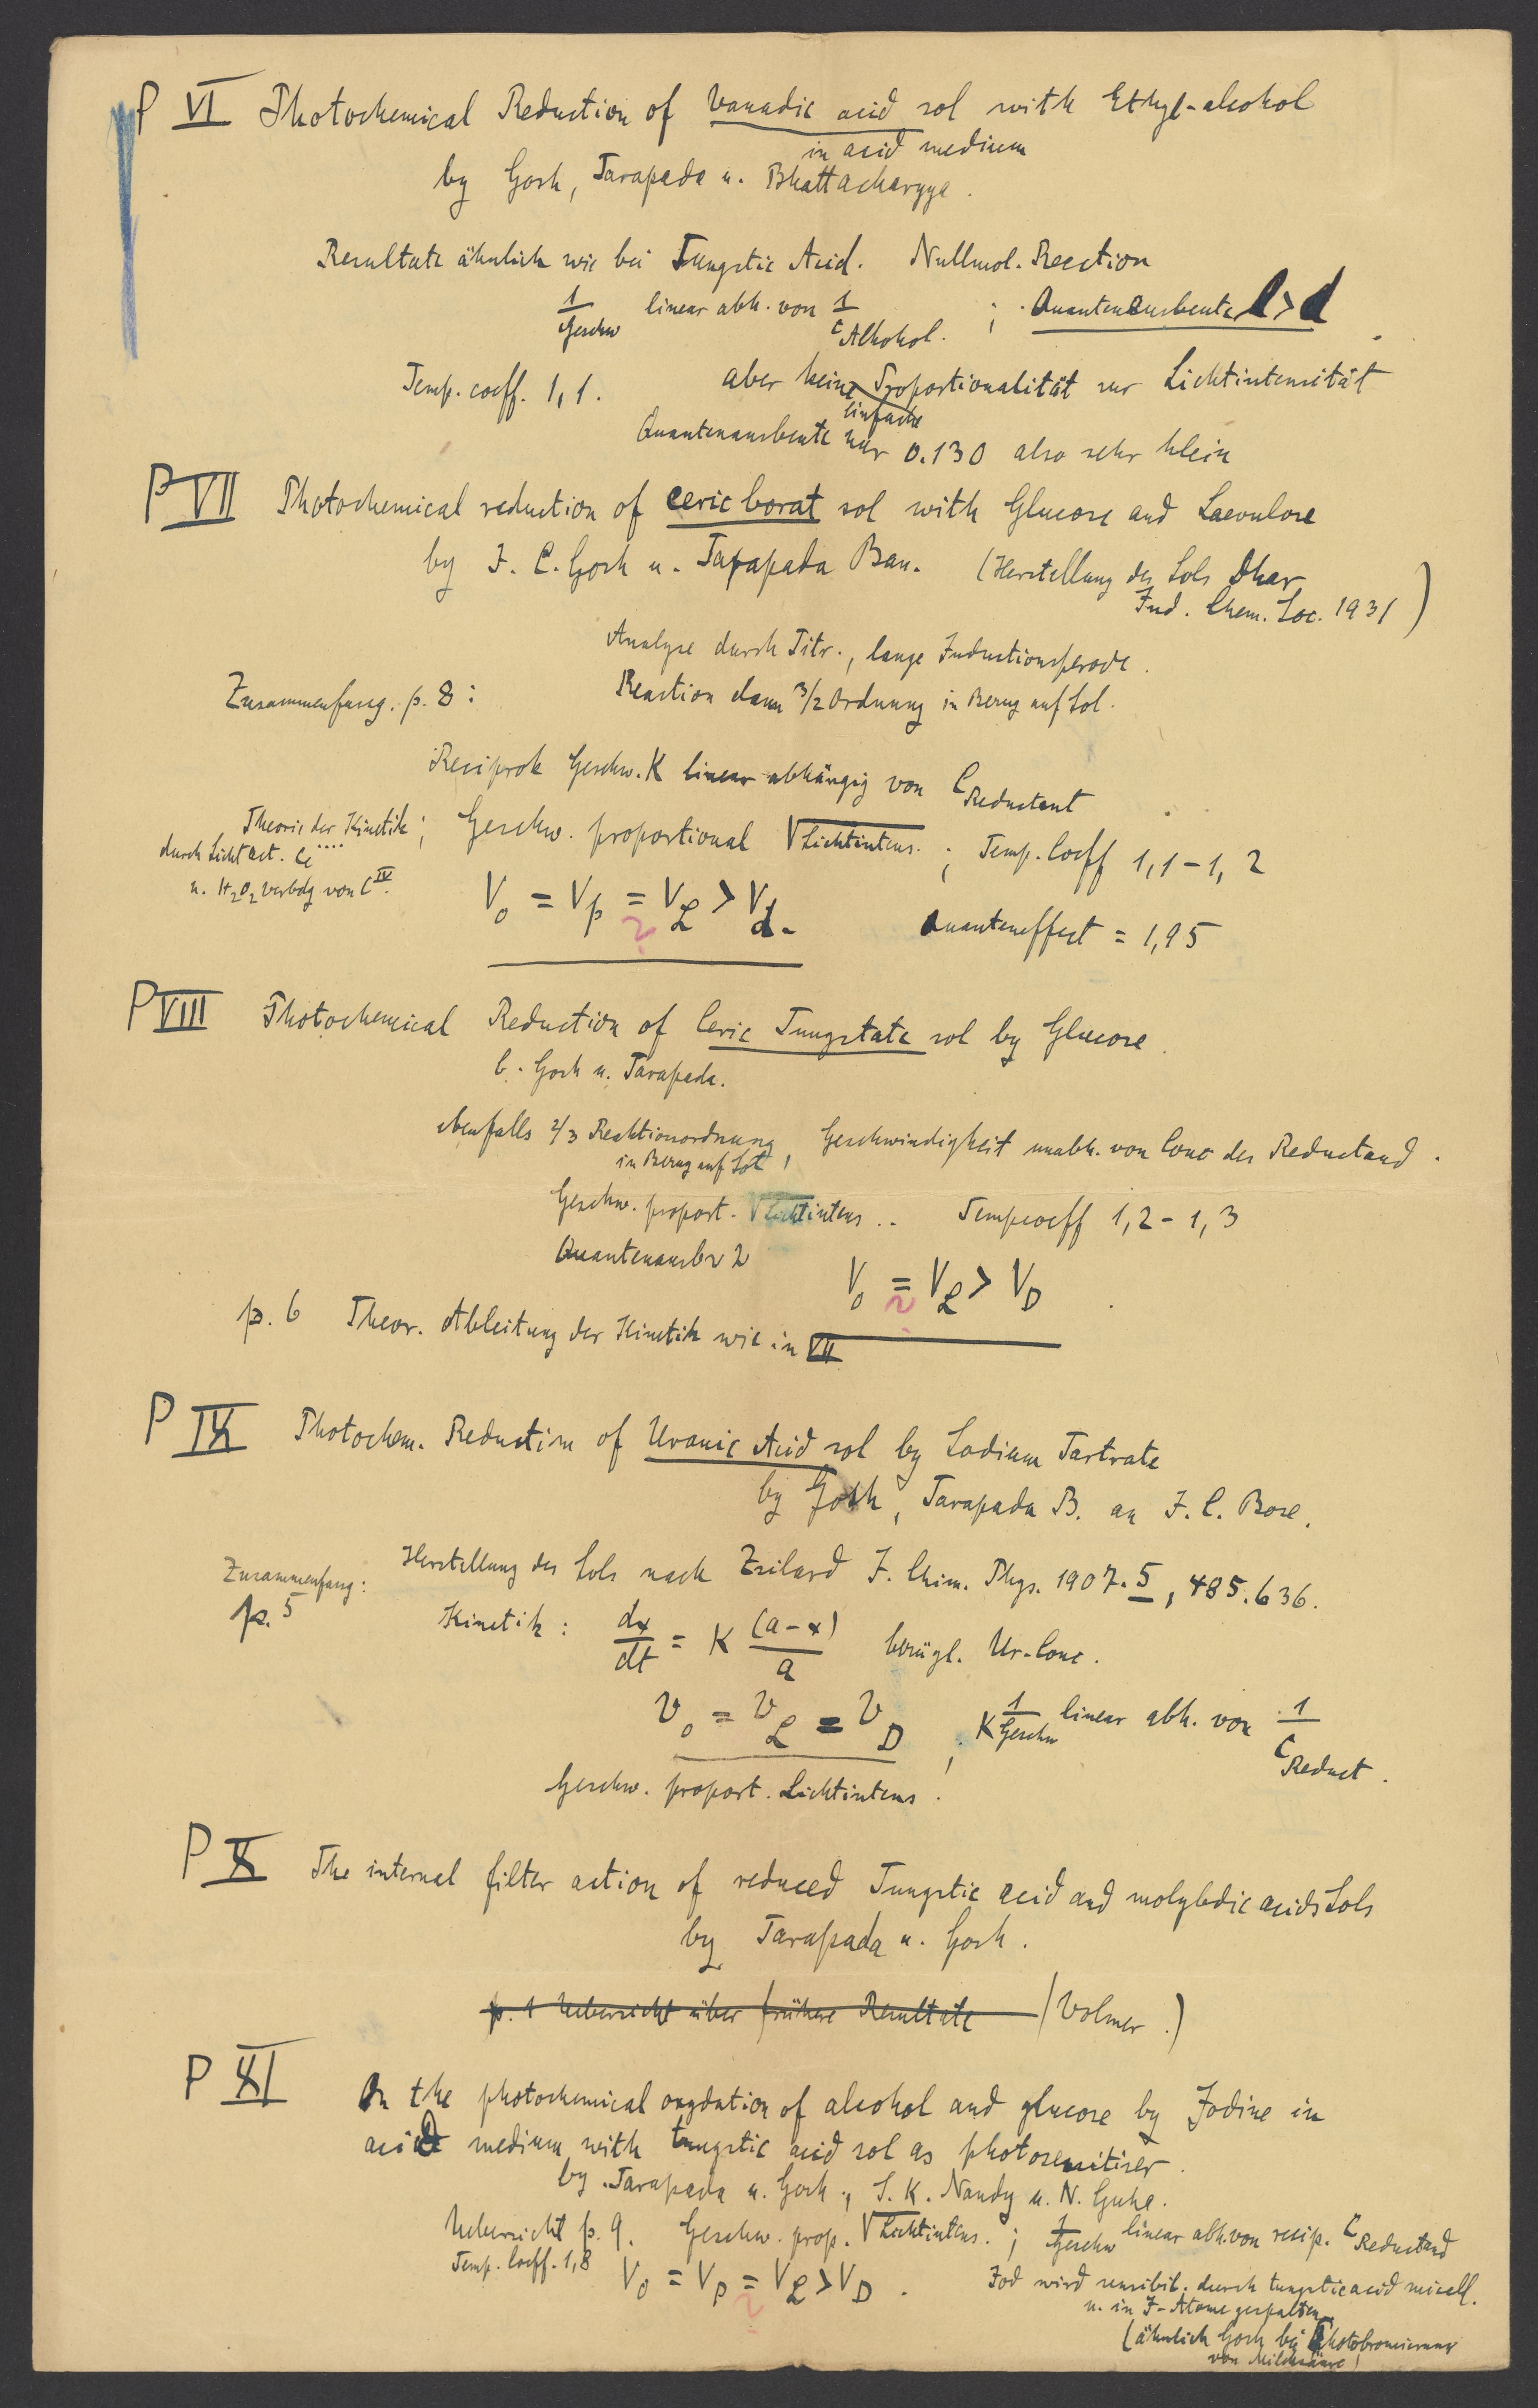 P VI Photochemical Reduction of Vanadic acid sol with Ethyl-alcohol
in acid medium
by Gosh, Tarapada u. Bhattacharyya.
Resultate ähnlich wie bei Tungstic Acid. Nullmol. Reaction
1/Geschw linear abh. von 1/C Alkohol. ; Quantenausbeute l > d
Temp. coeff. 1,1. aber keine Proportionalität zur Lichtintensität
einfache
Quantenausbeute nur 0.130 also sehr klein
P VII Photochemical reduction of ceric borat sol with Glucose and Laevulose
by J. C. Gosh u. Tarapada Ban. (Herstellung des Sols Dhar
Ind. Chem. Soc. 1931)
Analyse durch Titr., lange Inductionsperode.
Zusammenfassg. p. 8: Reaction dann 3/2 Ordnung in Bezug auf Sol.
Reciprok Geschw. K linear abhängig von C Reductant
Theorie der Kinetik; Geschw. proportional √Lichtintens. ; Temp. Coeff 1,1-1,2
durch Licht act. Ce....
u. H2O2 Verbdg von C IV.
Vo = Vp = VL > Vd. Quanteneffect = 1,95
?
P VIII Photochemical Reduction of Ceric Tungstate sol by Glucose.
b. Gosh u. Tarapada.
ebenfalls 2/3 Reaktionsordnung, Geschwindigkeit unabh. von Conc der Reductand.
in Bezug auf Sol
Geschw. proport. √Lichtintens.. Tempcoeff 1,2-1,3
Quantenausb ~ 2
Vo = VL > VD
?
p. 6 Theor. Ableitung der Kinetik wie in VII
P IX Photochem. Reduction of Uranic Acid sol by Sodium Tartrate
by Gosh, Tarapada B. an J. C. Bose.
Zusammenfassg: Herstellung des Sols nach Zsilard J. Chim. Phys. 1907. 5, 485. 636.
p. 5
Kinetik: dx/dt = K (a-x)/a bezügl. Ur-Conc.
vo = vL = vD, K 1/Geschw linear abh. von 1/C Reduct.
Geschw. proport. Lichtintens.
P X The internal filter action of reduced Tungstic acid and molybdic acids Sols
by Tarapada u. Gosh.
p. 1 Uebersicht über frühere Resultate (Volmer.)
P XI On the photochemical oxydation of alcohol and glucose by Jodine in
acid medium with tungstic acid sol as photosensitiser.
by Tarapada u. Gosh, S. K. Nandy u. N. Guha.
Uebersicht p. 9. Geschw. prop. √Lichtintens. ; 1/Geschw linear abh. von recip. C Reductand
Temp. Coeff. 1,8
Vo = Vp = VL > VD.
?
Jod wird sensibil. durch tungstic acid micell.
u. in J-Atome gespalten
(ähnlich Gosh bei Photobromierung
von Milchsäure)